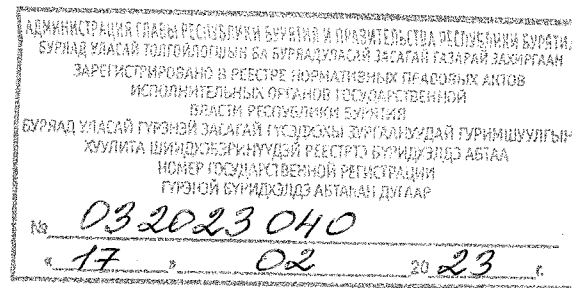 АДМИНИСТРАЦИЯ ГЛАВЫ РЕСПУБЛИКИ БУРЯТИЯ И ПРАВИТЕЛЬСТВА РЕСПУБЛИКИ БУРЯТИЯ
БУРЯАД УЛАСАЙ ТОЛГОЙЛОГШЫН БА БУРЯАД УЛАСАЙ ЗАСАГАЙ ГАЗАРАЙ ЗАХИРГААН
ЗАРЕГИСТРИРОВАНО В РЕЕСТРЕ НОРМАТИВНЫХ ПРАВОВЫХ АКТОВ
ИСПОЛНИТЕЛЬНЫХ ОРГАНОВ ГОСУДАРСТВЕННОЙ
ВЛАСТИ РЕСПУБЛИКИ БУРЯТИЯ
БУРЯАД УЛАСАЙ ГҮРЭНЭЙ ЗАСАГАЙ ГҮЙСЭДХЭХЫ ЗУРГААНУУДАЙ ГУРИМШУУЛГЫН
ХУУЛИТА ШИИДХЭБЭРИНҮҮДЭЙ РЕЕСТРТЭ БҮРИДХЭЛДЭ АБТАА
НОМЕР ГОСУДАРСТВЕННОЙ РЕГИСТРАЦИИ
ГҮРЭНЭЙ БҮРИДХЭЛДЭ АБТАҺАН ДУГААР
№ 032023040
« 17 » 02 20 23 г.